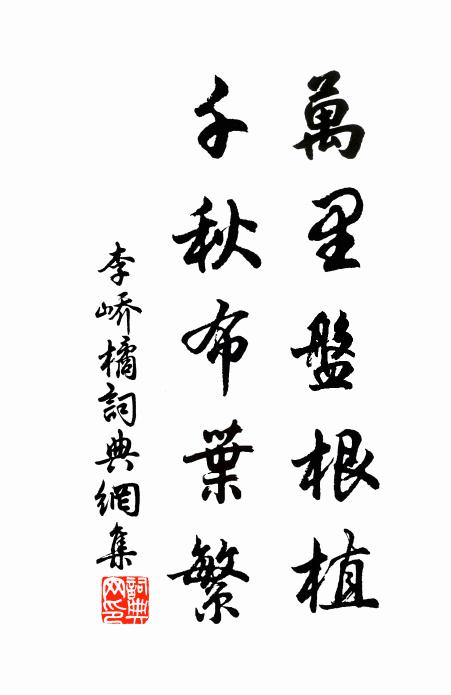 萬里盤根植
千秋布葉繁
李嶠橘詞典網集
詞典網印